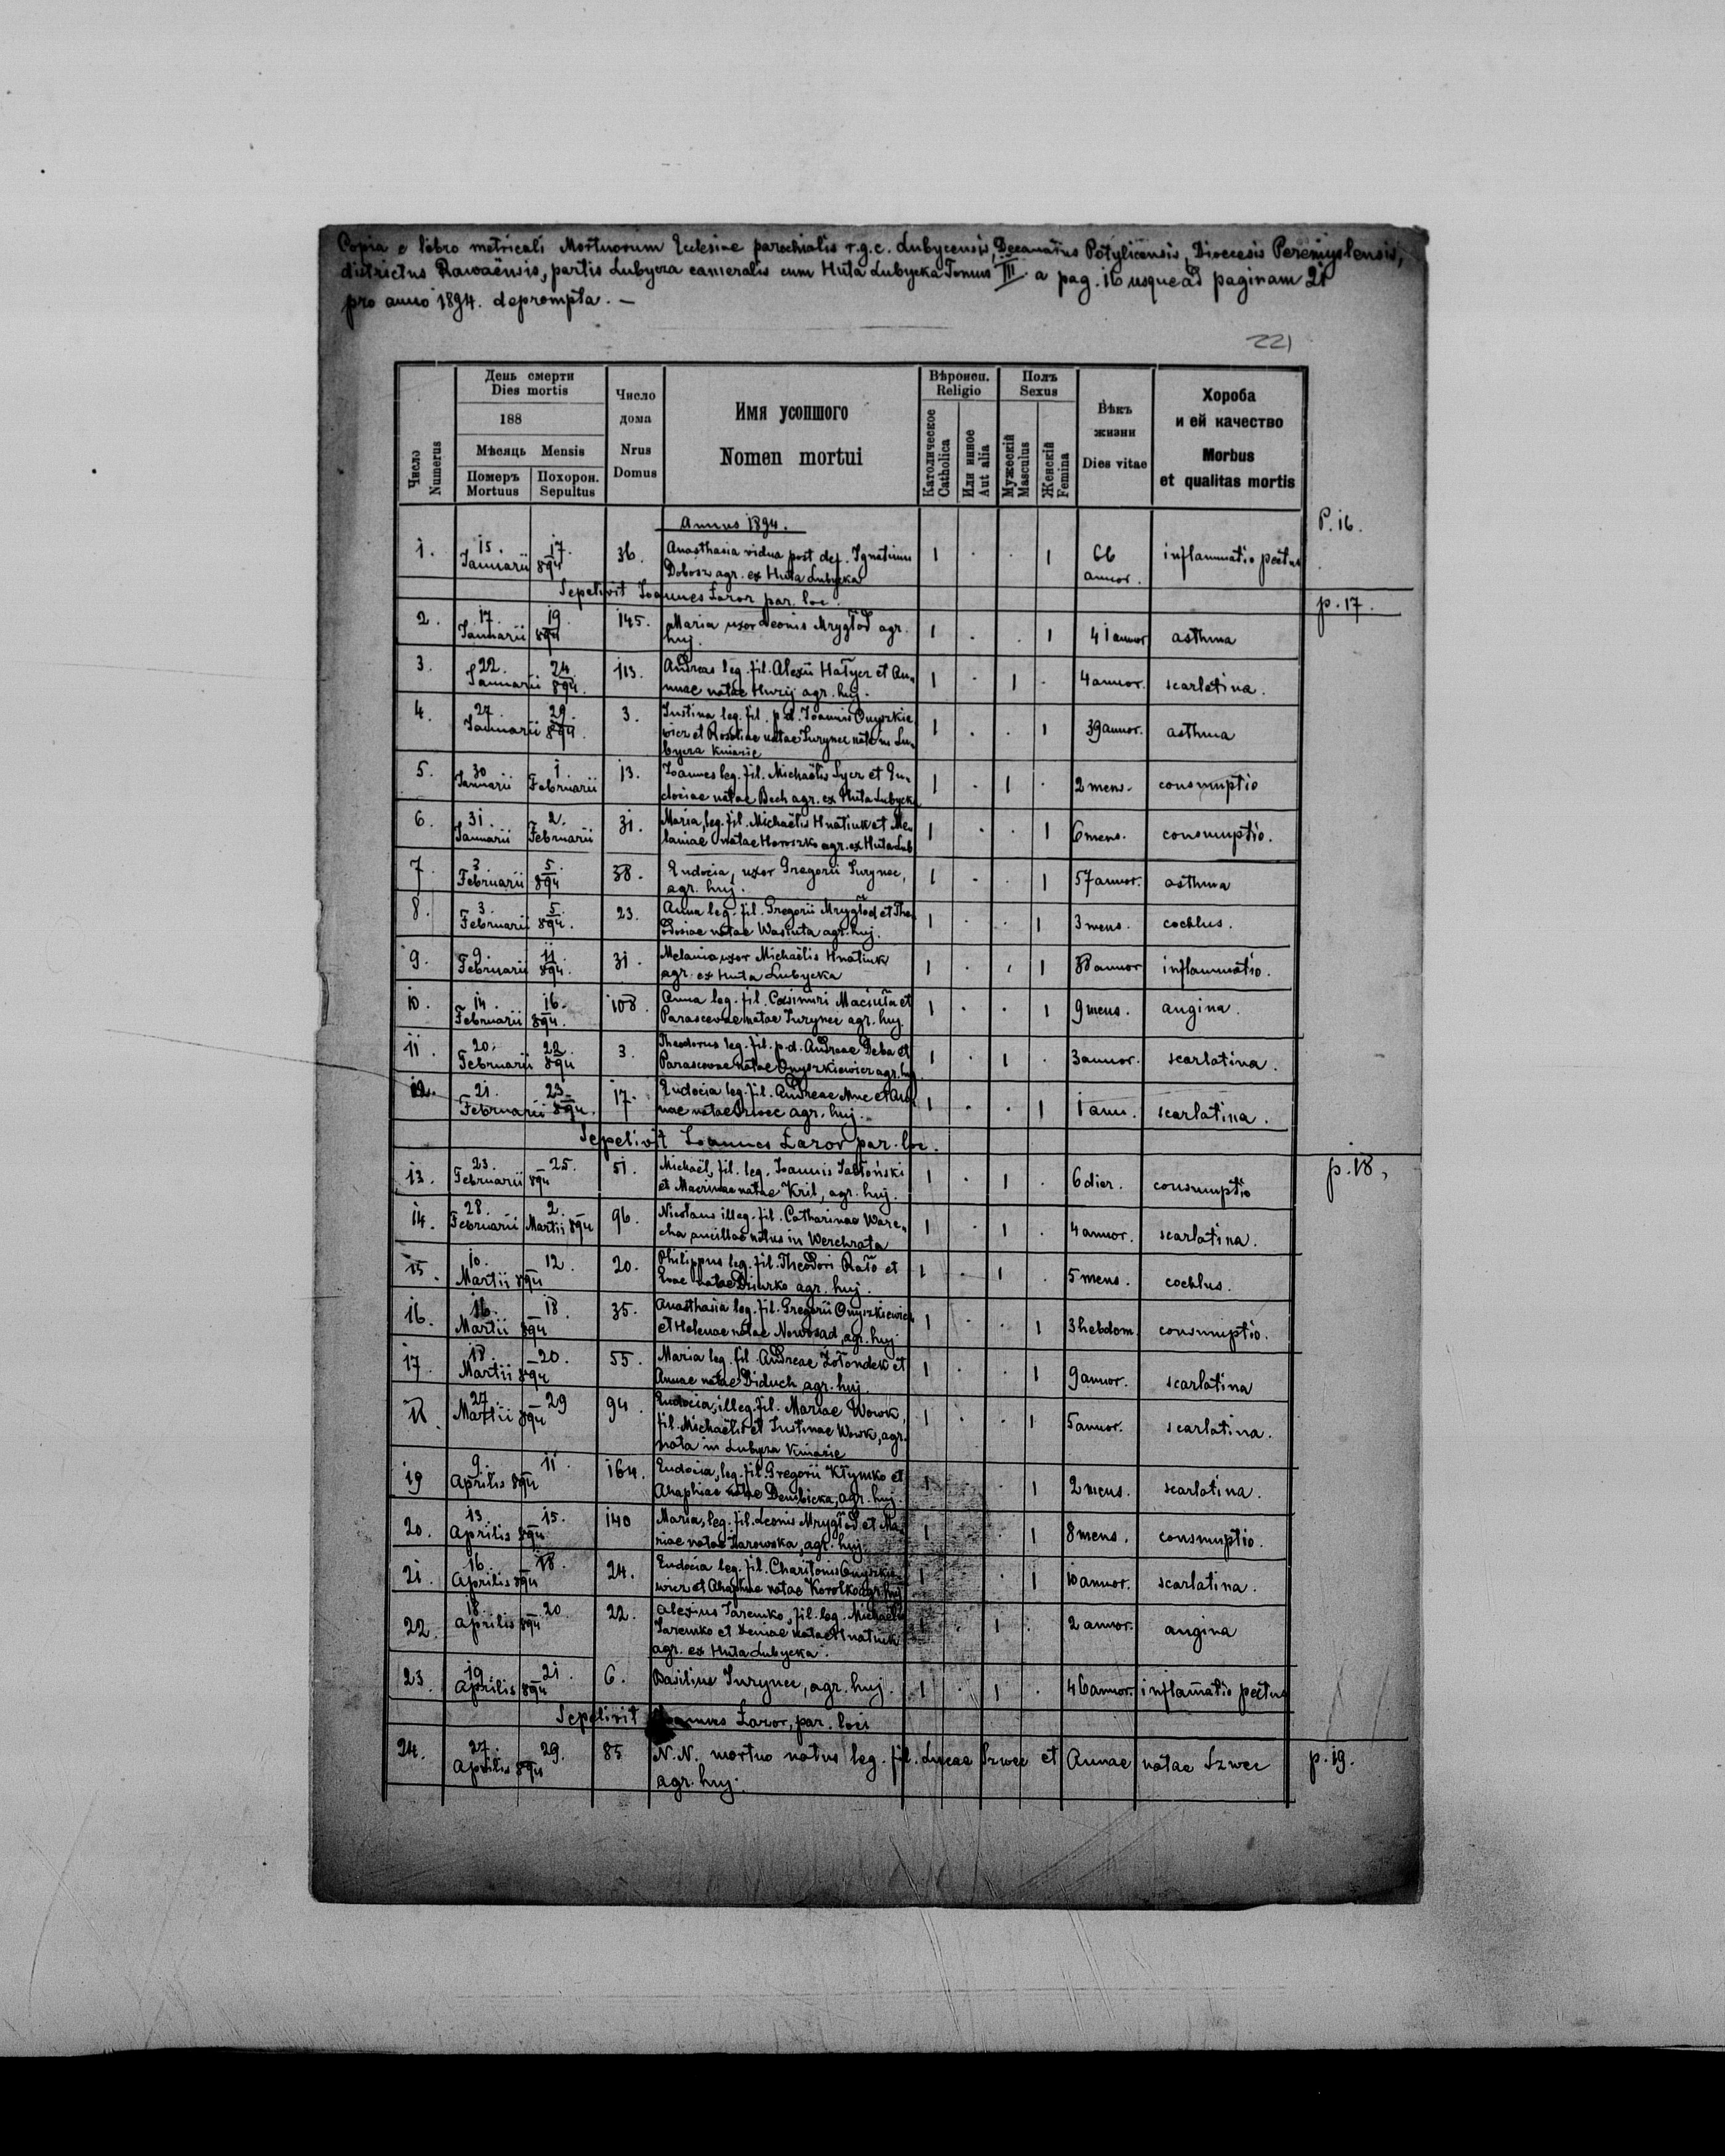 Copia e libro metricali Mortuorum Ecclesiae parochialis r.g.c. Lubycensis, Decanatus Potylicensis, Dioecesis Peremyslensis,
districtus Rawaënsis, partis Lubycza cameralis cum Huta Lubycka Tomus III a pag. 16 usque ad paginam 21
pro anno 1894. deprompta. —
221
Число Numerus
День смерти
Dies mortis
188
Мѣсяць Mensis
Померъ Mortuus
Похорон. Sepultus
Число дома
Nrus Domus
Имя усопшого
Nomen mortui
Вѣроисп. Religio
Католическое Catholica
Или инное Aut alia
Полъ Sexus
Мужескій Masculus
Женскій Femina
Вѣкъ жизни
Dies vitae
Хороба
и ей качество
Morbus
et qualitas mortis
Annus 1894.
P. 16.
1. 15. Januarii 17. 894 36. Anasthasia vidua post def. Ignatium 1 . . 1 66 annor. inflammatio pectus
Dobosz agr. ex Huta Lubycka
Sepelivit Joannes Łazor par. loc.
p. 17.
2. 17. Januarii 19. 894 145. Maria uxor Leonis Mrygłod agr. 1 . . 1 41 annor asthma
huj.
3. 22. Januarii 24. 894. 113. Andreas leg. fil. Alexii Hałycz et An- 1 . 1 . 4 annor. scarlatina.
nae natae Huzij agr. huj.
4. 27. Januarii 29. 894. 3. Justina leg. fil. p.d. Joannis Onyszkie 1 . . 1 39 annor. asthma
wicz et Rosaliae natae Jurynec nata in Lu-
bycza Kniazie
5. 30 Januarii 1. Februarii 13. Joannes leg. fil. Michaëlis Lycz et Eu- 1 . 1 . 2 mens. consumptio
dociae natae Bech agr. ex Huta Lubycka
6. 31. Januarii 2. Februarii 31. Maria, leg. fil. Michaëlis Hnatiuk et Me- 1 . . 1 6 mens. consumptio.
laniae natae Horoszko agr. ex Huta Lub
7. 3 Februarii 5. 894 38. Eudocia, uxor Gregorii Jurynec, 1 . . 1 57 annor. asthma
agr. huj.
8. 3. Februarii 5. 894. 23. Anna leg. fil. Gregorii Mrygłod et The 1 . . 1 3 mens. cochlus.
odosiae natae Wasiuta agr. huj.
9. 9. Februarii 11. 894. 31. Melania uxor Michaëlis Hnatiuk 1 . . 1 38 annor inflammatio.
agr. ex Huta Lubycka
10. 14. Februarii 16. 894. 108. Anna leg. fil. Casimiri Maciuła et 1 . . 1 9 mens. angina.
Parascevae natae Jurynec agr. huj.
11. 20. Februarii 22. 894 3. Theodorus leg. fil. p.d. Andreae Deba et 1 . 1 . 3 annor. scarlatina.
Parascevae natae Onyszkiewicz agr. huj.
12. 21. Februarii 23. 894. 17. Eudocia leg. fil. Andreae et An 1 . . 1 1 ann. scarlatina.
nae natae Szwec agr. huj.
Sepelivit Joannes Łazor par. loc.
p. 18,
13. 23. Februarii 25. 894 51. Michaël, fil. leg. Joannis Jabłoński 1 . 1 . 6 dier. consumptio
et Macrinae natae Kril, agr. huj.
14. 28. Februarii 2. Martii 894 96. Nicolaus illeg. fil. Catharinae Ware- 1 . 1 . 4 annor. scarlatina.
cha ancillae natus in Werchrata
15. 10. Martii 12. 894 20. Philippus leg. fil. Theodori Rało et 1 . 1 . 5 mens. cochlus.
Evae natae Dziurko agr. huj.
16. 16. Martii 18. 894 35. Anasthasia leg. fil. Gregorii Onyszkiewicz 1 . . 1 3 hebdom. consumptio.
et Helenae natae Nowosad, agr. huj
17. 18. Martii 20. 894 55. Maria leg. fil. Andreae Żołondek et 1 . . 1 9 annor. scarlatina
Annae natae Diduch agr. huj.
18. 27. Martii 29 894 94. Eudocia, illeg. fil. Mariae Wowk, 1 . . 1 5 annor. scarlatina.
fil. Michaëlis et Justinae Wowk, agr.
nata in Lubycza Kniazie
19 9. Aprilis 11. 894 164. Eudocia, leg. fil. Gregorii Kłymko et 1 . . 1 2 mens. scarlatina.
Ahaphiae natae Dembicka, agr. huj.
20. 13. Aprilis 15. 894 140 Maria, leg. fil. Leonis Mrygłod et Ma- 1 . 1 8 mens. consumptio.
riae natae Harowska, agr. huj.
21. 16. Aprilis 18. 894 24. Eudocia leg. fil. Charitonis Onyszkie- 1 . 1 10 annor. scarlatina.
wicz et Ahaphiae natae Korolko agr. huj
22. 18. Aprilis 20 894 22. Alexius Jaremko, fil. leg. Michaëlis 1 . 1 . 2 annor. angina
Jaremko et Xeniae natae Hnatiuk
agr. ex Huta Lubycka.
23. 19 Aprilis 21. 894 6. Basilius Jurynec, agr. huj. 1 . 1 . 46 annor. inflam̄atio pectus
Sepelivit Joannes Łazor, par. loci
24. 27. Aprilis 29. 894 85 N.N. mortuo natus leg. fil. Lucae Szwec et Annae natae Szwec
p. 19.
agr. huj.